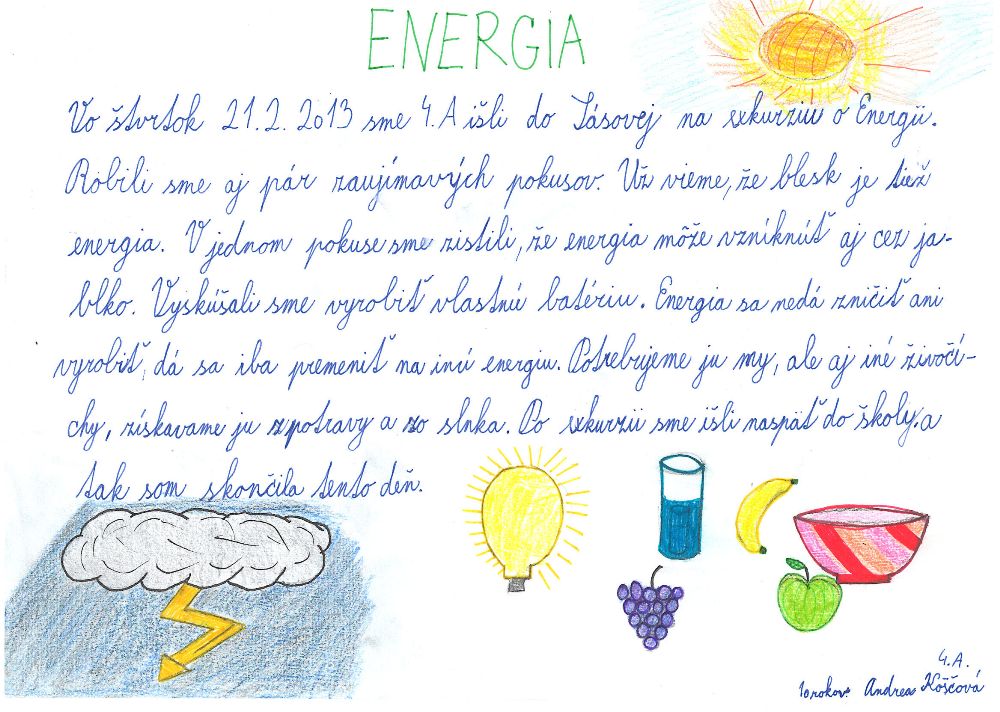 ENERGIA
Vo štvrtok 21.2.2013 sme 4.A išli do Jásovej na exkurziu o Energii.
Robili sme aj pár zaujímavých pokusov. Už vieme, že blesk je tiež
energia. V jednom pokuse sme zistili, že energia môže vzniknúť aj cez ja-
blko. Vyskúšali sme vyrobiť vlastnú batériu. Energia sa nedá zničiť ani
vyrobiť, dá sa iba premeniť na inú energiu. Potrebujeme ju my, ale aj iné živočí-
chy, získavame ju z potravy a zo slnka. Po exkurzii sme išli naspäť do školy a
tak som skončila tento deň.
4.A.
10 rokov: Andrea Koščová